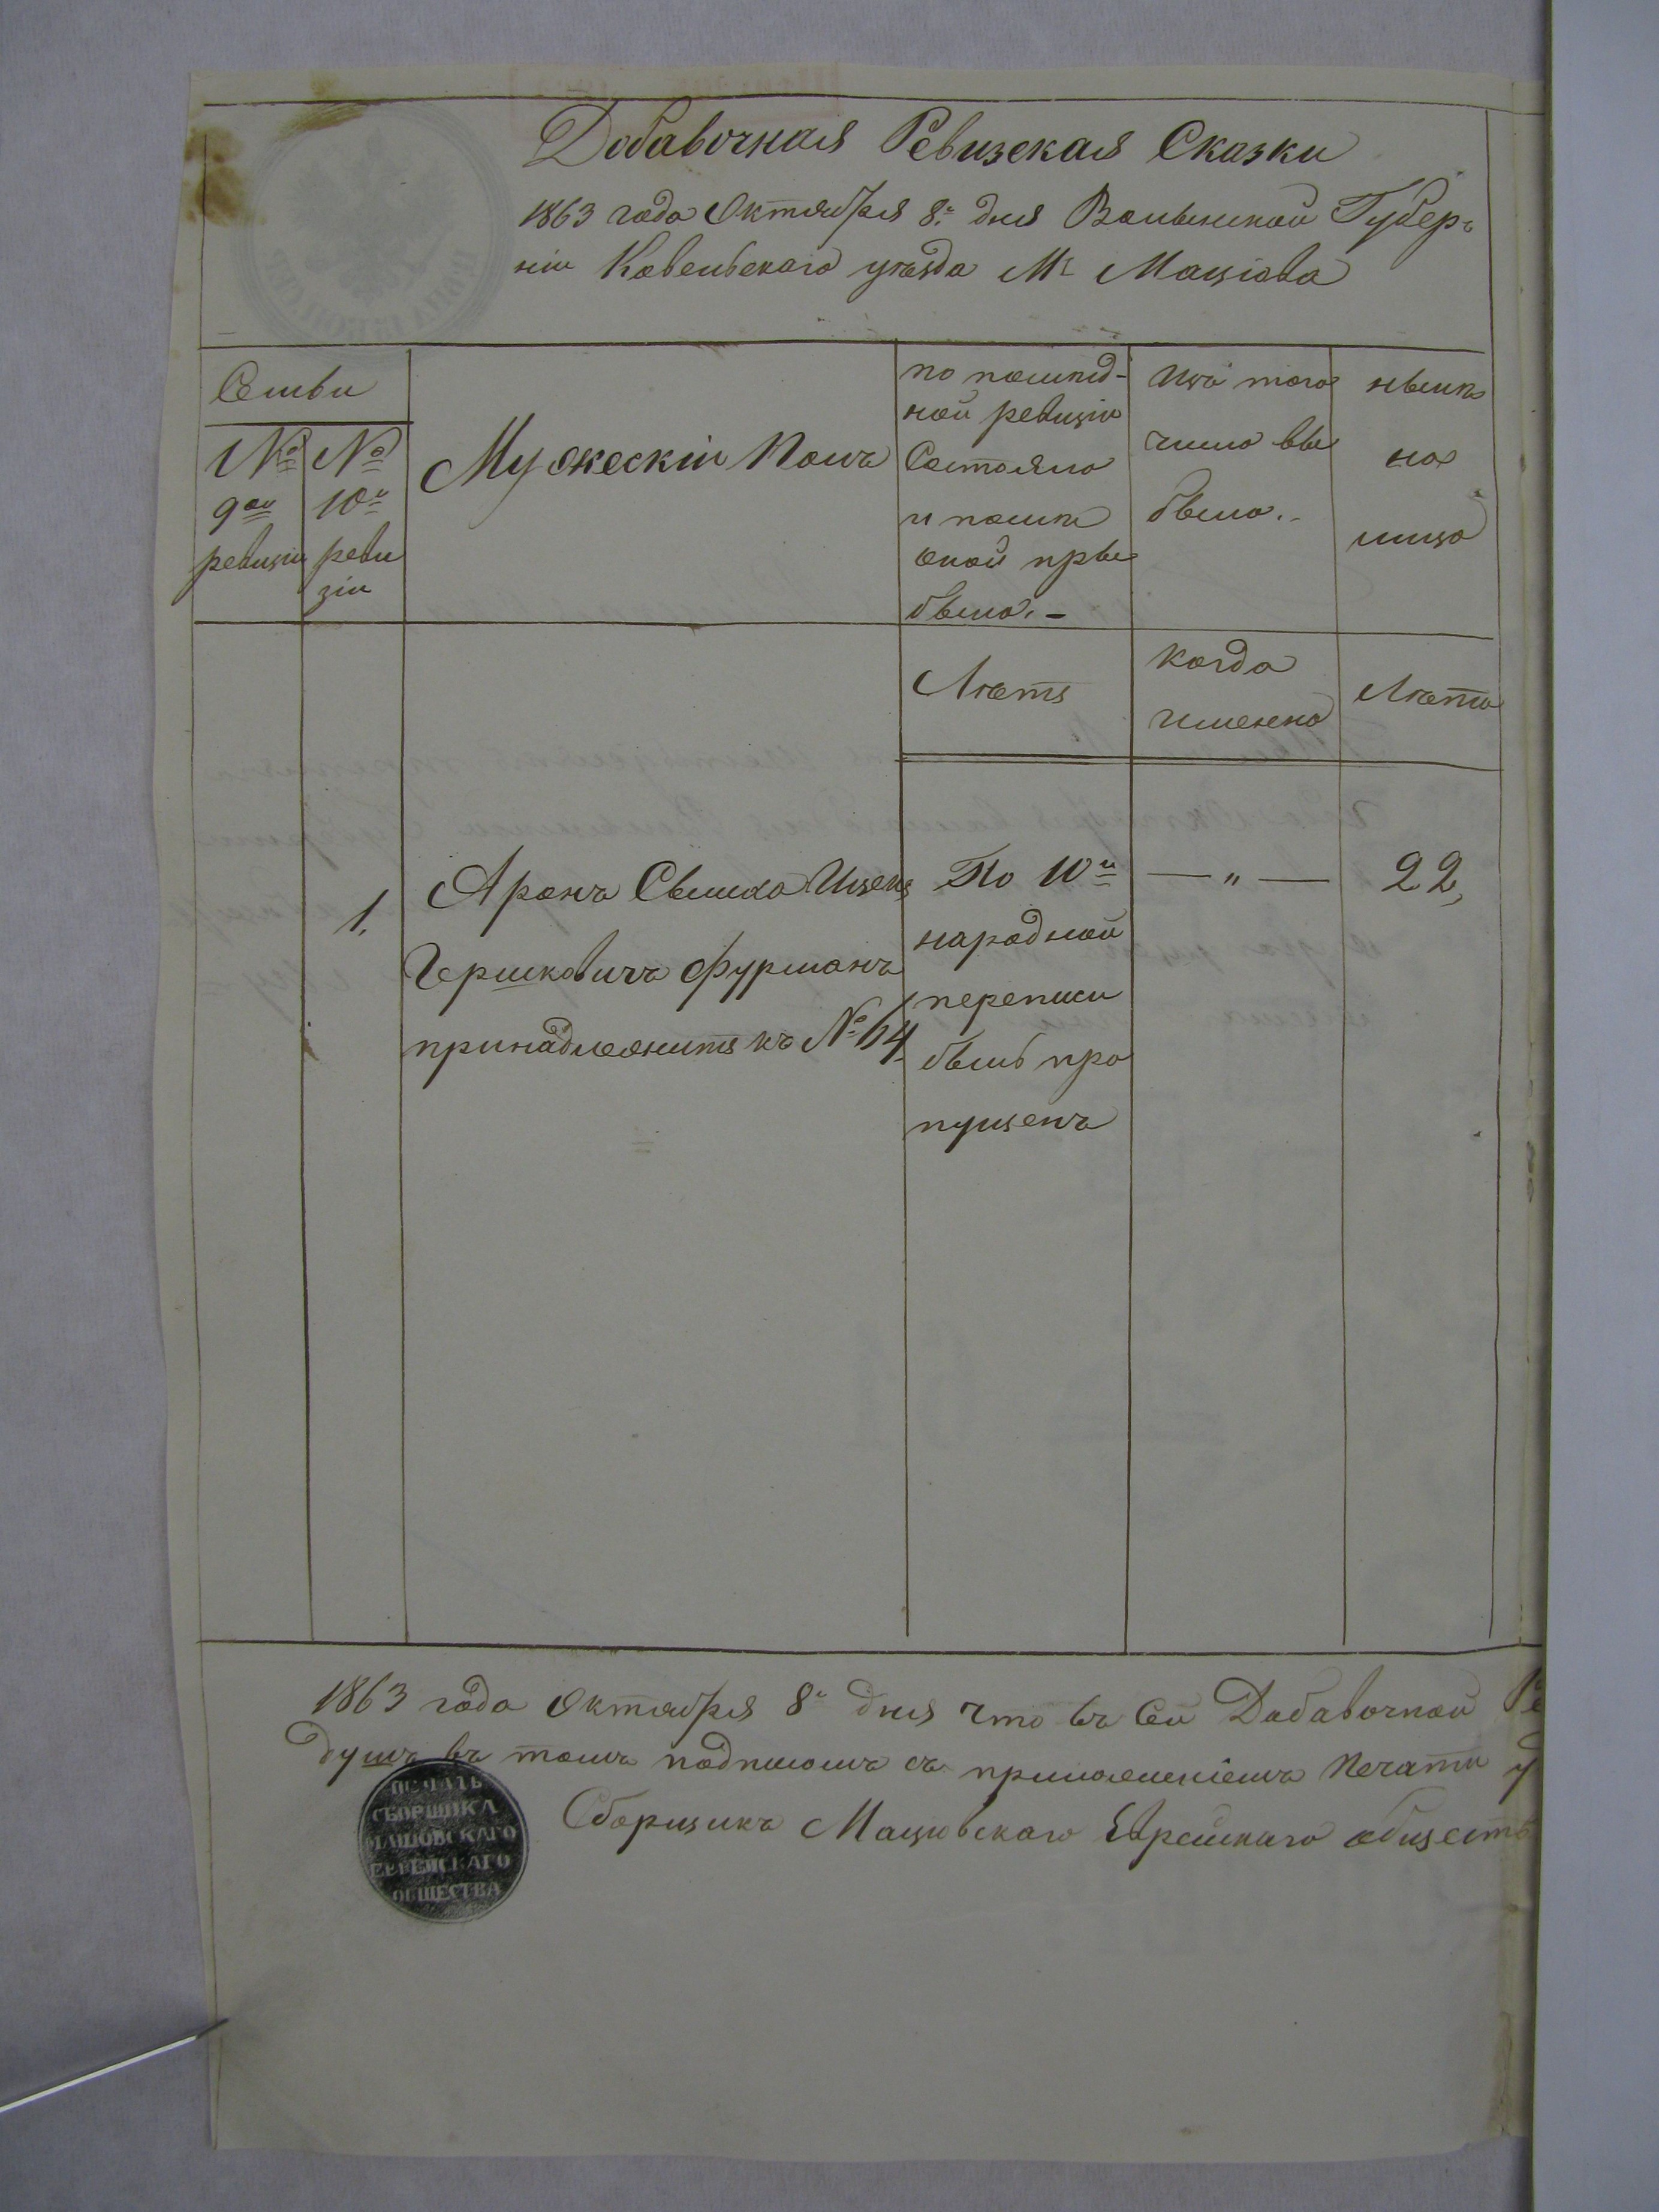 Добавочная Ревизская Сказки
1863 года Октября 8.го дня Волынской Губер-
ніи Ковельскаго уѣзда М. Мацiова
Семьи
№
9ой
ревизіи
№
10й
реви
зіи
Мужескій Полъ
по послѣд-
ной ревизіи
Состояло
и послѣ
оной при
было. -
Изъ того
числа вы
было. -
нынѣ
на
лицо
Лѣтъ
когда
именно
Лѣта
1.
Аронъ Сымха Ицек
Гершковичъ Фурманъ
принадлежитъ къ № 64
По 10й
народной
переписи
былъ про
пущенъ
— „ —
22,
1863 года Октября 8го дня что въ сей Добавочной Ре
душъ въ томъ подписомъ съ приложеніемъ печати у
Сборщикъ Мацiовскаго Еврейскаго обществ
ПЕЧАТЬ
СБОРЩИКА
МАЦІОВСКАГО
ЕВРЕЙСКАГО
ОБЩЕСТВА